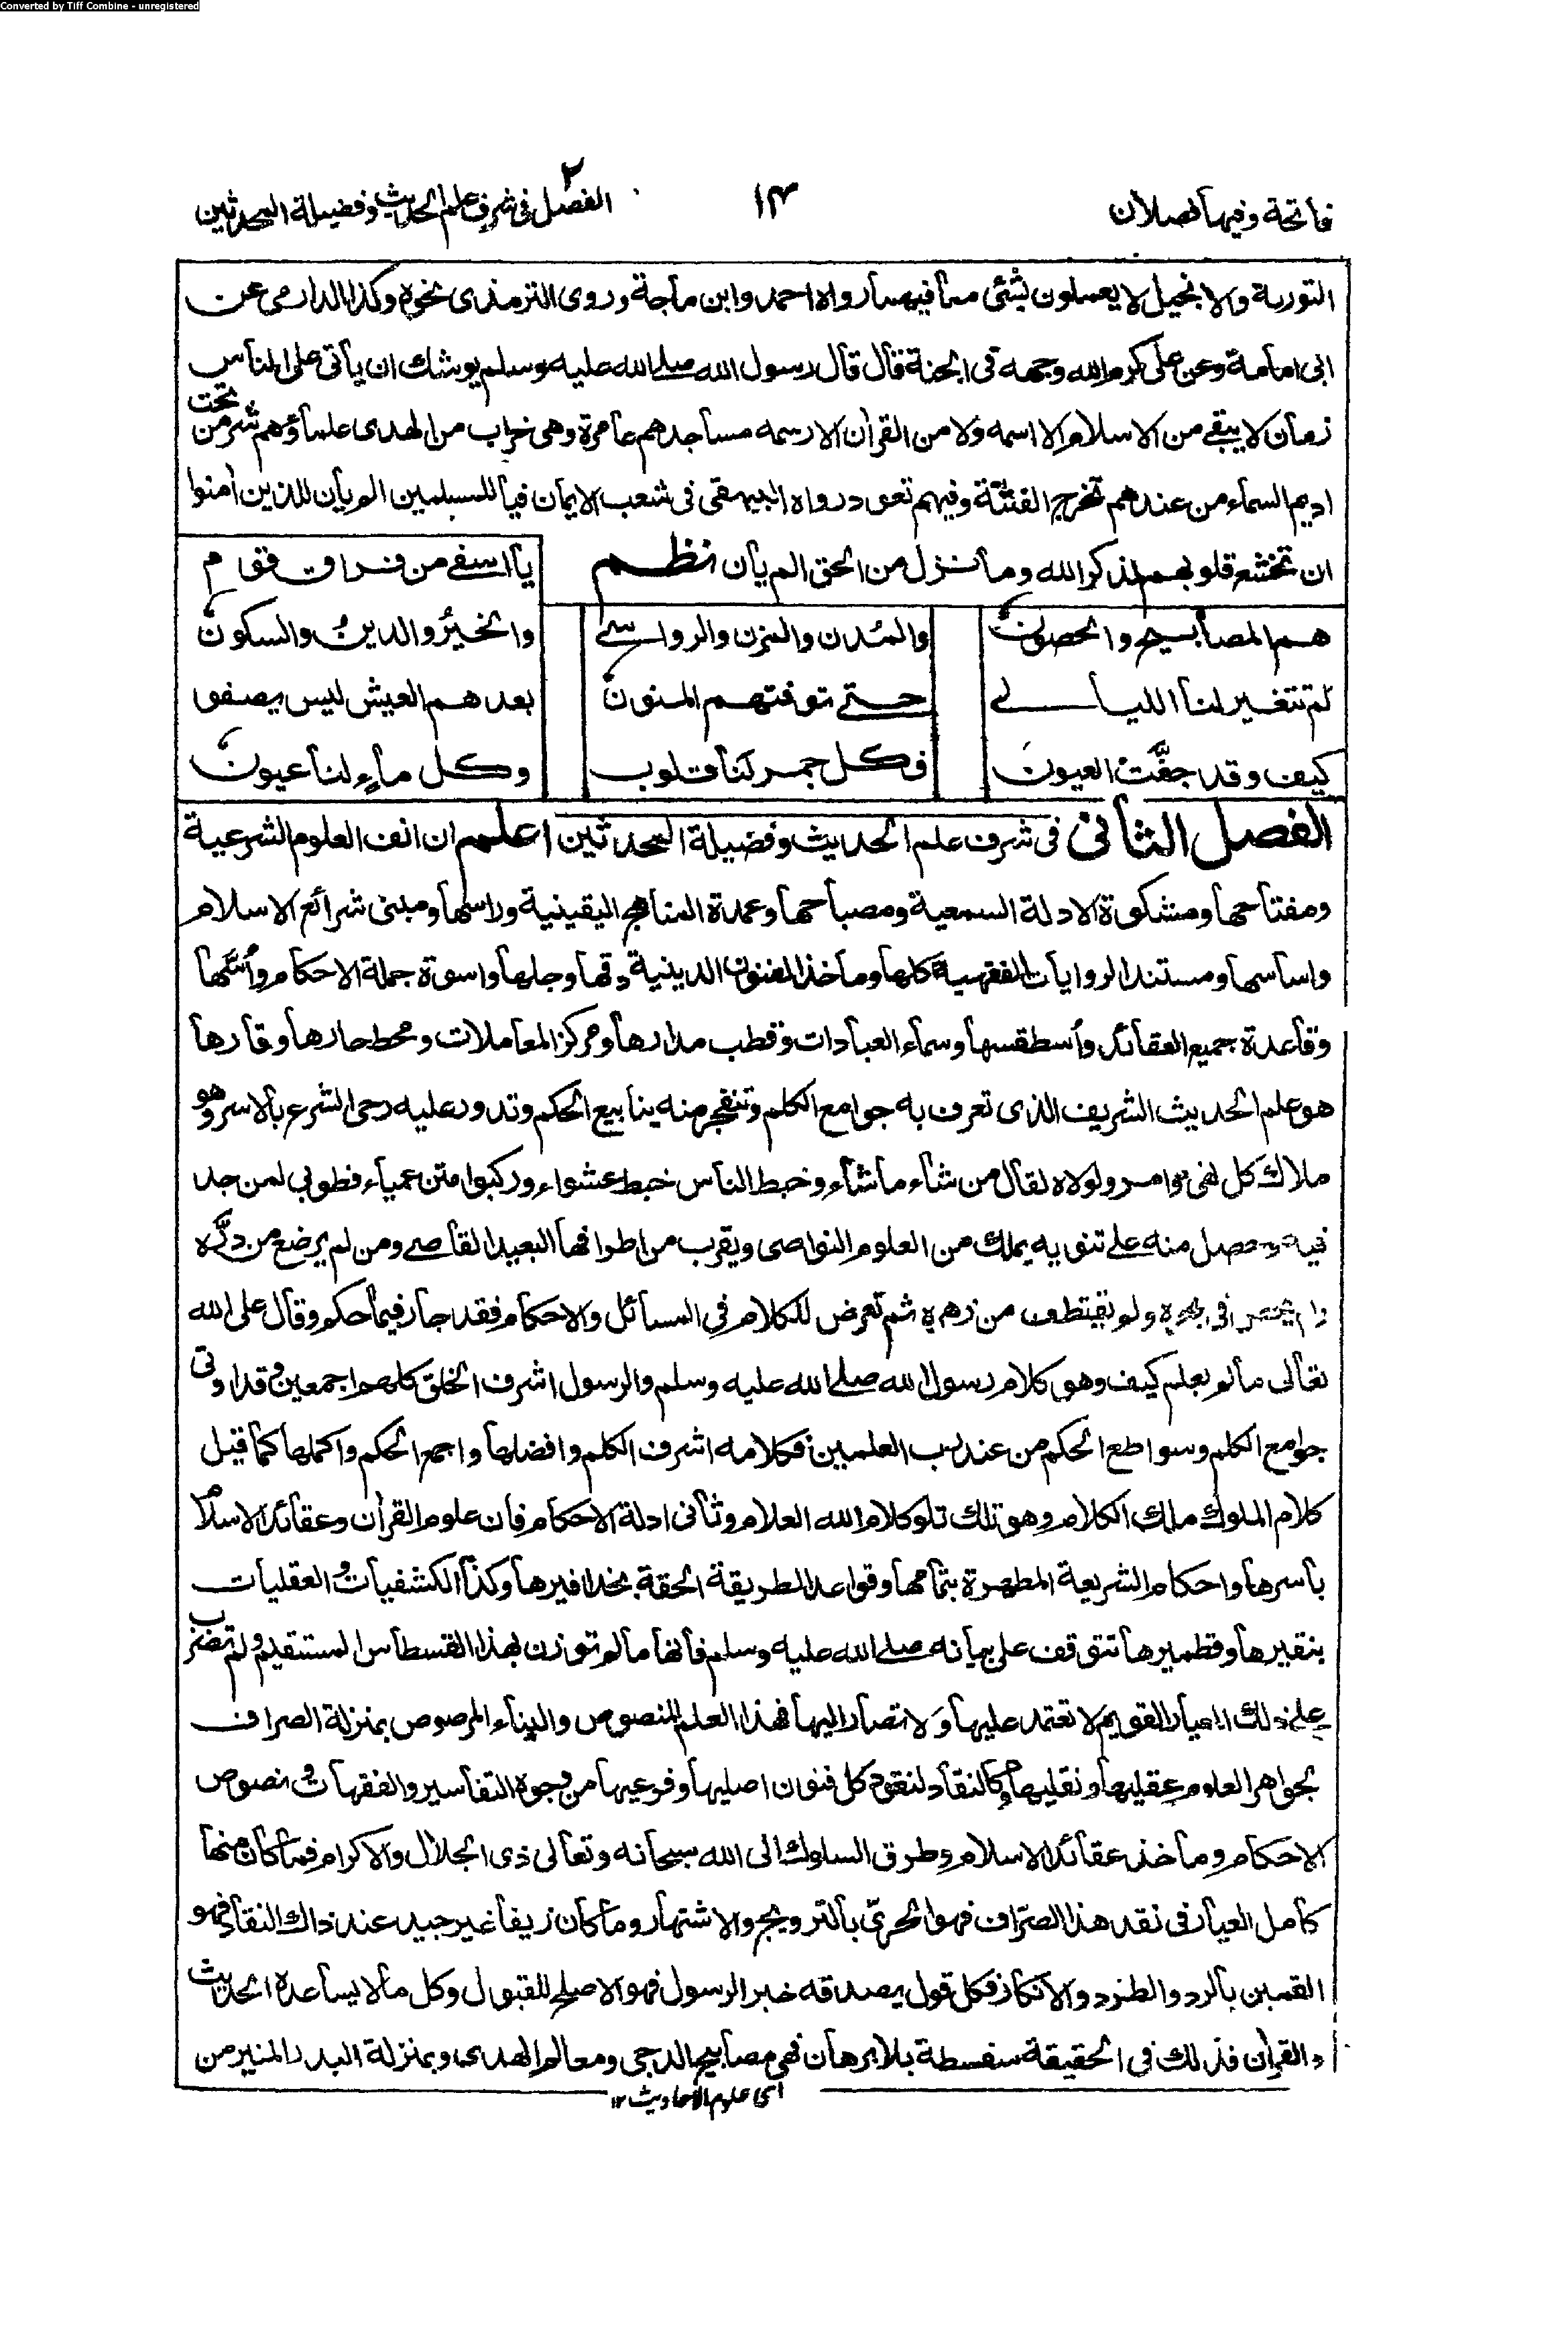 Converted by Tiff Combine - unregistered
فاتحة وفيها فصلان
١٣
الفصل ٢ فى شرف علم الحديث وفضيلة المحدثين
التورىة والانجيل لا يعملون بشئ مما فيهما رواه احمد وابن ماجة وروى الترمذى نحوه وكذا الدارمى عن
ابى امامة وعن على كرم الله وجهه فى الجنة قال قال رسول الله صلے الله عليه وسلم يوشك ان يأتى على الناس
زمان لا يبقے من الاسلام الا اسمه ولا من القرأن الا رسمه مساجدهم عامرة وهى خراب من الهدى علماؤهم شر من تحت
اديم السماء من عندهم تخرج الفتنة وفيهم تعود رواه البيهقى فى شعب الايمان فيا للمسلمين الم يأن للذين أمنوا
ان تخشع قلوبهم لذكر الله وما نزل من الحق الم يأن نظم
يا اسفے من فراق قوم
هم المصابيح والحصون
والمدن والمزن والرواسے
والخير والدين والسكون
لم تتغير لنا الليالے
حتے توفتهم المنون
بعدهم العيش ليس يصفو
كيف وقد جفّت العيون
فكل جمر لنا قلوب
وكل ماء لنا عيون
الفصل الثانى فى شرف علم الحديث وفضيلة المحدثين اعلم ان انف العلوم الشرعية
ومفتاحها ومشكوة الادلة السمعية ومصباحها وعمدة المناهج اليقينية وراسها ومبنى شرائع الاسلام
واساسها ومستند الروايات الفقهية كلها ومأخذ الفنون الدينية دقها وجلها واسوة جملة الاحكام وأسّها
وقاعدة جميع العقائد وأسطقسها وسماء العبادات وقطب مدارها ومركز المعاملات ومحط حارها وقارها
هو علم الحديث الشريف الذى تعرف به جوامع الكلم وتنفجر منه ينابيع الحكم وتدور عليه رحى الشرع بالاسر وهو
ملاك كل نهى وامر ولولاه لقال من شاء ما شاء وخبط الناس خبط عشواء وركبوا متن عمياء فطوبى لمن جد
فيه وحصل منه على تنويه يملك من العلوم النواصى ويقرب من اطرافها البعيد القاصے ومن لم يرضع من درّه
ولم يخض فى بحره ولم يقتطف من زهره ثم تعرض للكلام فى المسائل والاحكام فقد جار فيما حكم وقال على الله
تعالى ما لم يعلم كيف وهو كلام رسول الله صلے الله عليه وسلم والرسول اشرف الخلق كلهم اجمعين وقد اوتى
جوامع الكلم وسواطع الحكم من عند رب العلمين فكلامه اشرف الكلم وافضلها واجمع الحكم واكملها كما قيل
كلام الملوك ملك الكلام وهو تلك تلو كلام الله العلام وثانى ادلة الاحكام فان علوم القرأن وعقائد الاسلام
بأسرها واحكام الشريعة المطهرة بتمامها وقواعد الطريقة الحقة بحذافيرها وكذا الكشفيات والعقليات
بنقيرها وقطميرها تتوقف على بيانه صلے الله عليه وسلم فانها ما لم توزن بهذا القسطاس المستقيم ولم تضرب
على ذلك المعيار القويم لا تعتمد عليها ولا تصار اليها فهذا العلم المنصوص والبناء المرصوص بمنزلة الصراف
بجواهر العلوم عقليها ونقليها وكالنقاد لنقود كل فنون اصليها وفرعيها من وجوه التفاسير والفقهات ونصوص
الاحكام ومأخذ عقائد الاسلام وطرق السلوك الى الله سبحانه وتعالى ذى الجلال والاكرام فما كان منها
كامل العيار فى نقد هذا الصرّاف فهو الحرىّ بالترويج والاشتهار وما كان زيفا غير جيد عند ذاك النقاد فهو
القمين بالرد والطرد والانكار فكل قول يصدقه خبر الرسول فهو الاصلح للقبول وكل ما لا يساعده الحديث
والقرأن فذلك فى الحقيقة سفسطة بلا برهان فهى مصابيح الدجى ومعالم الهدى وبمنزلة البدر المنير من
اى علوم الاحاديث ١٢